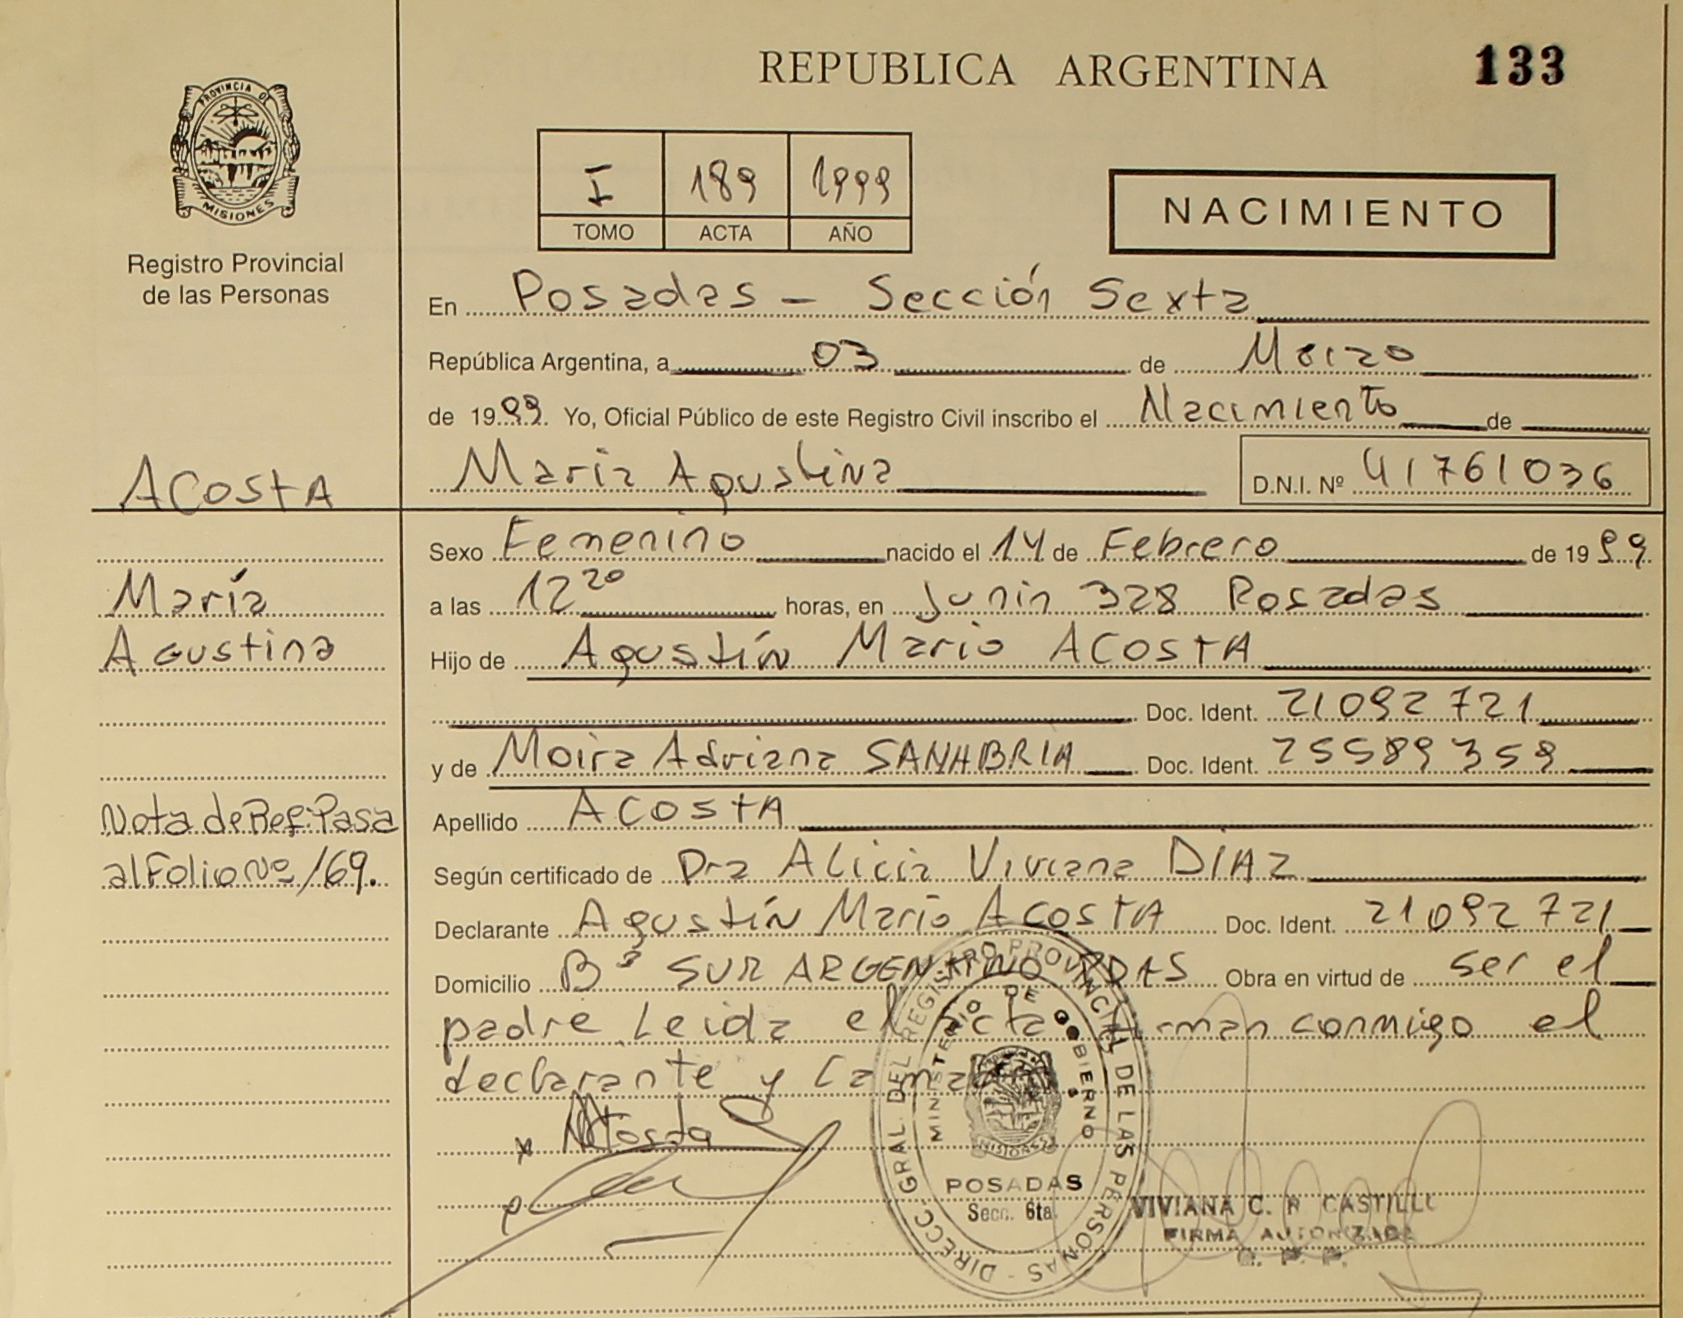 REPUBLICA ARGENTINA
133
PROVINCIA DE
MISIONES
Registro Provincial
de las Personas
I 189 1999
TOMO ACTA AÑO
NACIMIENTO
En Posadas - Sección Sexta
República Argentina, a 03 de Marzo
de 1999. Yo, Oficial Público de este Registro Civil inscribo el Nacimiento de
ACOSTA
Maria Agustina D.N.I. Nº 41761036
Sexo Femenino nacido el 14 de Febrero de 1999
María
Agustina
a las 12 20 horas, en Junin 328 Posadas
Hijo de Agustín Mario ACOSTA
Doc. Ident. 21092721
y de Moira Adriana SANABRIA Doc. Ident. 25589359
Nota de Ref: Pasa
al Folio Nº 169.
Apellido ACOSTA
Según certificado de Dra Alicia Viviana DIAZ
Declarante Agustín Mario Acosta Doc. Ident. 21092721
Domicilio Bº SUR ARGENTINO PDAS Obra en virtud de ser el
padre Leida el acta firman conmigo el
declarante y la madre
DIRECC. GRAL. DEL REGISTRO PROVINCIAL DE LAS PERSONAS -
MINISTERIO DE GOBIERNO
MISIONES
POSADAS
Secc. 6ta.
VIVIANA C. R CASTILLO
FIRMA AUTORIZADA